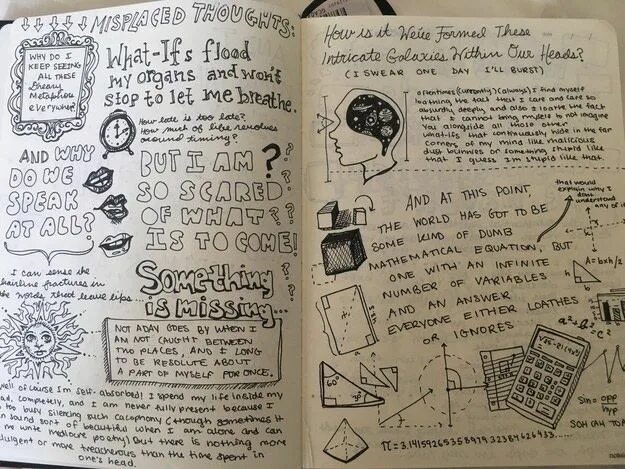 ↓↓↓↓ MISPLACED THOUGHTS:
WHY DO I
KEEP SEEING
ALL THESE
Dreary
Metaphors
everywhere?
What-Ifs flood
my organs and won't
stop to let me breathe.
How late is too late?
How much of life revolves
around timing?
AND WHY
DO WE
SPEAK
AT ALL?
BUT I AM ?
SO SCARED
OF WHAT??
IS TO COME!
I can sense the
hairline fractures in
the words that leave lips...
Something
is missing...
NOT A DAY GOES BY WHEN I
AM NOT CAUGHT BETWEEN
TWO PLACES, AND I LONG
TO BE RESOLUTE ABOUT
A PART OF MYSELF FOR ONCE.
well of course I'm self-absorbed! I spend my life inside my
completely, and I am never fully present because I
too busy silencing such cacophony (though sometimes it
sound sort of beautiful when I am alone and can
write mediocre poetry) but there is nothing more
or more treacherous than the time spent in
one's head.
How is it We've Formed These
Intricate Galaxies Within Our Heads?
(I SWEAR ONE DAY I'LL BURST)
oftentimes (currently) (always) I find myself
loathing the fact that I care and care so
absurdly deeply, and also I loathe the fact
that I cannot bring myself to not imagine
you alongside all those other
what-ifs that continuously hide in the far
corners of my mind like malicious
dust bunnies or something stupid like
that I guess I'm stupid like that.
AND AT THIS POINT,
THE WORLD HAS GOT TO BE
SOME KIND OF DUMB
MATHEMATICAL EQUATION, BUT
ONE WITH AN INFINITE
NUMBER OF VARIABLES
AND AN ANSWER
EVERYONE EITHER LOATHES
OR IGNORES
that would
explain why I
don't
understand
any of it
A=bxh/2
h
b
a²+b²=c²
60°
r
sin = opp
hyp
SOH CAH TOA
π=3.14159265358979323846264 33.....